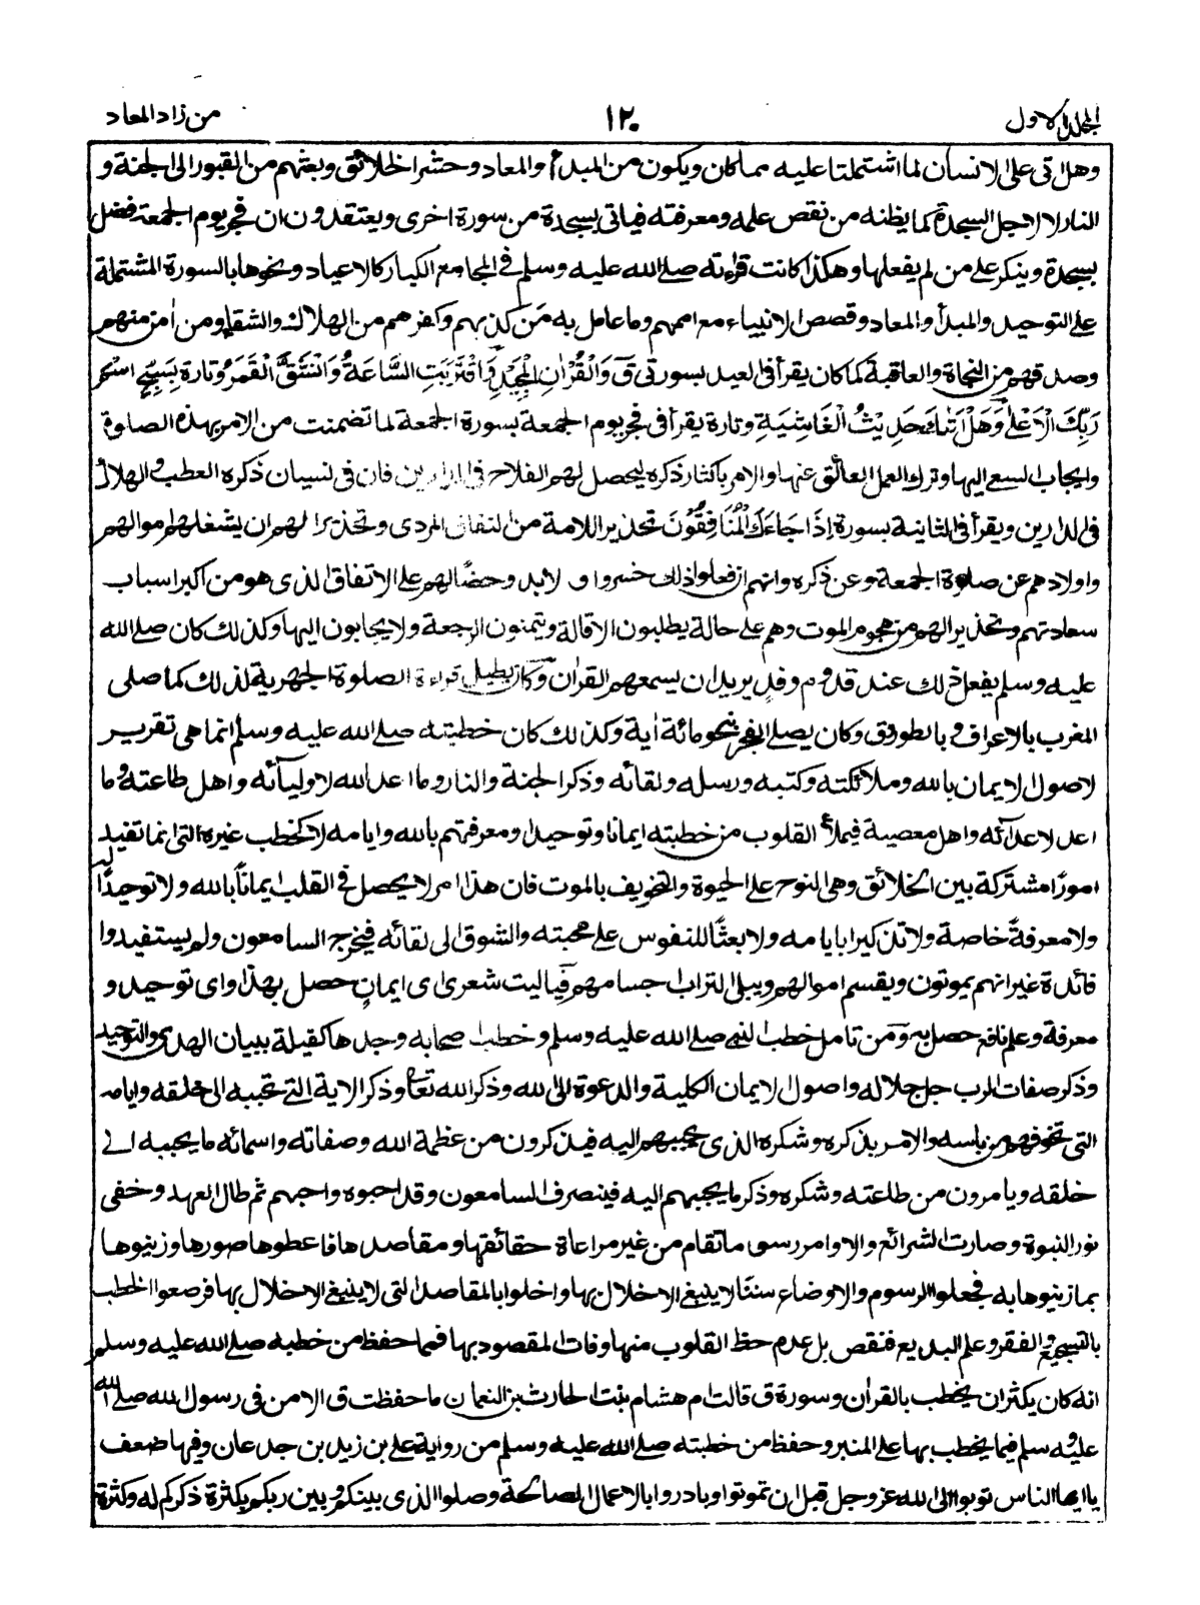 المجلد الاول
١٢٠
من زاد المعاد
وهل اتى على الانسان لما اشتملتا عليه مما كان ويكون من المبدأ والمعاد وحشر الخلائق وبعثهم من القبور الى الجنة و
النار لا لاجل السجدة كما يظنه من نقص علمه ومعرفته فياتى بسجدة من سورة اخرى ويعتقدون ان فجر يوم الجمعة فضل
بسجدة وينكر على من لم يفعلها وهكذا كانت قراءته صلى الله عليه وسلم فى المجامع الكبار كالاعياد ونحوها بالسورة المشتملة
على التوحيد والمبدأ والمعاد وقصص الانبياء مع اممهم وما عامل به من كذبهم وكفرهم من الهلاك والشقاء ومن اٰمن منهم
وصدقهم من النجاة والعاقبة كما كان يقرأ فى العيد بسورتى قٓ وَالْقُرْاٰنِ الْمَجِيْدِ وَاقْتَرَبَتِ السَّاعَةُ وَانْشَقَّ الْقَمَرُ وتارة بِسَبِّحِ اسْمَ
رَبِّكَ الْاَعْلٰى وَهَلْ اَتٰكَ حَدِيْثُ الْغَاشِيَةِ وتارة يقرأ فى فجر يوم الجمعة بسورة الجمعة لما تضمنت من الامر بهذه الصلوة
وايجاب السعى اليها وترك العمل العائق عنها والامر باكثار ذكره ليحصل لهم الفلاح فى الدارين فان فى نسيان ذكره العطب والهلاك
فى الدارين ويقرأ فى الثانية بسورة اِذَا جَاءَكَ الْمُنَافِقُوْنَ تحذيرا للامة من النفاق المردى وتحذيرا لهم ان يشغلهم اموالهم
واولادهم عن صلوة الجمعة وعن ذكره وانهم ان فعلوا ذلك خسروا و لابد وحضًا لهم على الانفاق الذى هو من اكبر اسباب
سعادتهم وتحذيرا لهم من هجوم الموت وهم على حالة يطلبون الاقالة ويتمنون الرجعة ولا يجابون اليها وكذلك كان صلى الله
عليه وسلم يفعل ذلك عند قدوم وفد يريد ان يسمعهم القراٰن وكان يطيل قراءة الصلوة الجهرية لذلك كما صلى
المغرب بالاعراف و بالطور وق وكان يصلى الفجر بنحو مائة اٰية وكذلك كان خطبته صلى الله عليه وسلم انما هى تقرير
لاصول الايمان بالله وملائكته وكتبه ورسله ولقائه وذكر الجنة والنار وما اعد الله لاوليائه واهل طاعته وما
اعد لاعدائه واهل معصية فيملأ القلوب من خطبته ايمانا وتوحيدا ومعرفتهم بالله وايامه لا كخطب غيره التى انما تفيد
امورًا مشتركة بين الخلائق وهى النوح على الحيوة والتخويف بالموت فان هذا امر لا يحصل فى القلب ايمانًا بالله ولا توحيدًا له
ولا معرفةً خاصة ولا تذكيرا بايامه ولا بعثًا للنفوس على محبته والشوق الى لقائه فيخرج السامعون ولم يستفيدوا
فائدة غير انهم يموتون ويقسم اموالهم ويبلى التراب جسامهم فياليت شعرى اى ايمانٍ حصل بهذا واى توحيد و
معرفة وعلم نافع حصل به ومن تامل خطب النبى صلى الله عليه وسلم وخطب صحابه وجدها كفيلة ببيان الهدى والتوحيد
وذكر صفات الرب جل جلاله واصول الايمان الكلية والدعوة الى الله وذكر الله تعالى وذكر الاية التى تحببه الى خلقه وايامه
التى تخوفهم من باسه والامر بذكره وشكره الذى يحببهم اليه فيذكرون من عظمة الله وصفاته واسمائه ما يحببه الى
خلقه ويامرون من طاعته وشكره وذكر ما يحببهم اليه فينصرف السامعون وقد احبوه واحبهم ثم طال العهد وخفى
نور النبوة وصارت الشرائع والاوامر رسوما تقام من غير مراعاة حقائقها ومقاصدها فاعطوها صورها وزينوها
بما زينوها به فجعلوا الرسوم والاوضاع سننًا لا ينبغى الاخلال بها واخلوا بالمقاصد التى لا ينبغى الاخلال بها فرصعوا الخطب
بالتسجيع والفقر وعلم البديع فنقص بل عدم حظ القلوب منها وفات المقصود بها فمما حفظ من خطبه صلى الله عليه وسلم
انه كان يكثر ان يخطب بالقراٰن وسورة ق قالت ام هشام بنت الحارث بن النعمان ما حفظت ق الا من فى رسول الله صلى الله
عليه وسلم فيما يخطب بها على المنبر وحفظ من خطبته صلى الله عليه وسلم من رواية على بن زيد بن جدعان وفيها ضعف
يا ايها الناس توبوا الى الله عز وجل قبل ان تموتوا وبادروا بالاعمال الصالحة وصلوا الذى بينكم وبين ربكم بكثرة ذكركم له وكثرة